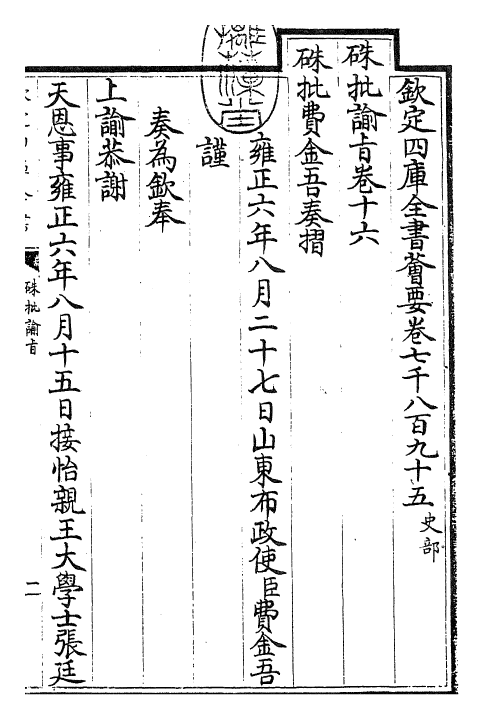 欽定四庫全書薈要卷七千八百九十五 史部
硃批諭旨卷十六
硃批費金吾奏摺
雍正六年八月二十七日山東布政使臣費金吾
謹
奏為欽奉
上諭恭謝
天恩事雍正六年八月十五日接怡親王大學士張廷
硃批諭旨
二